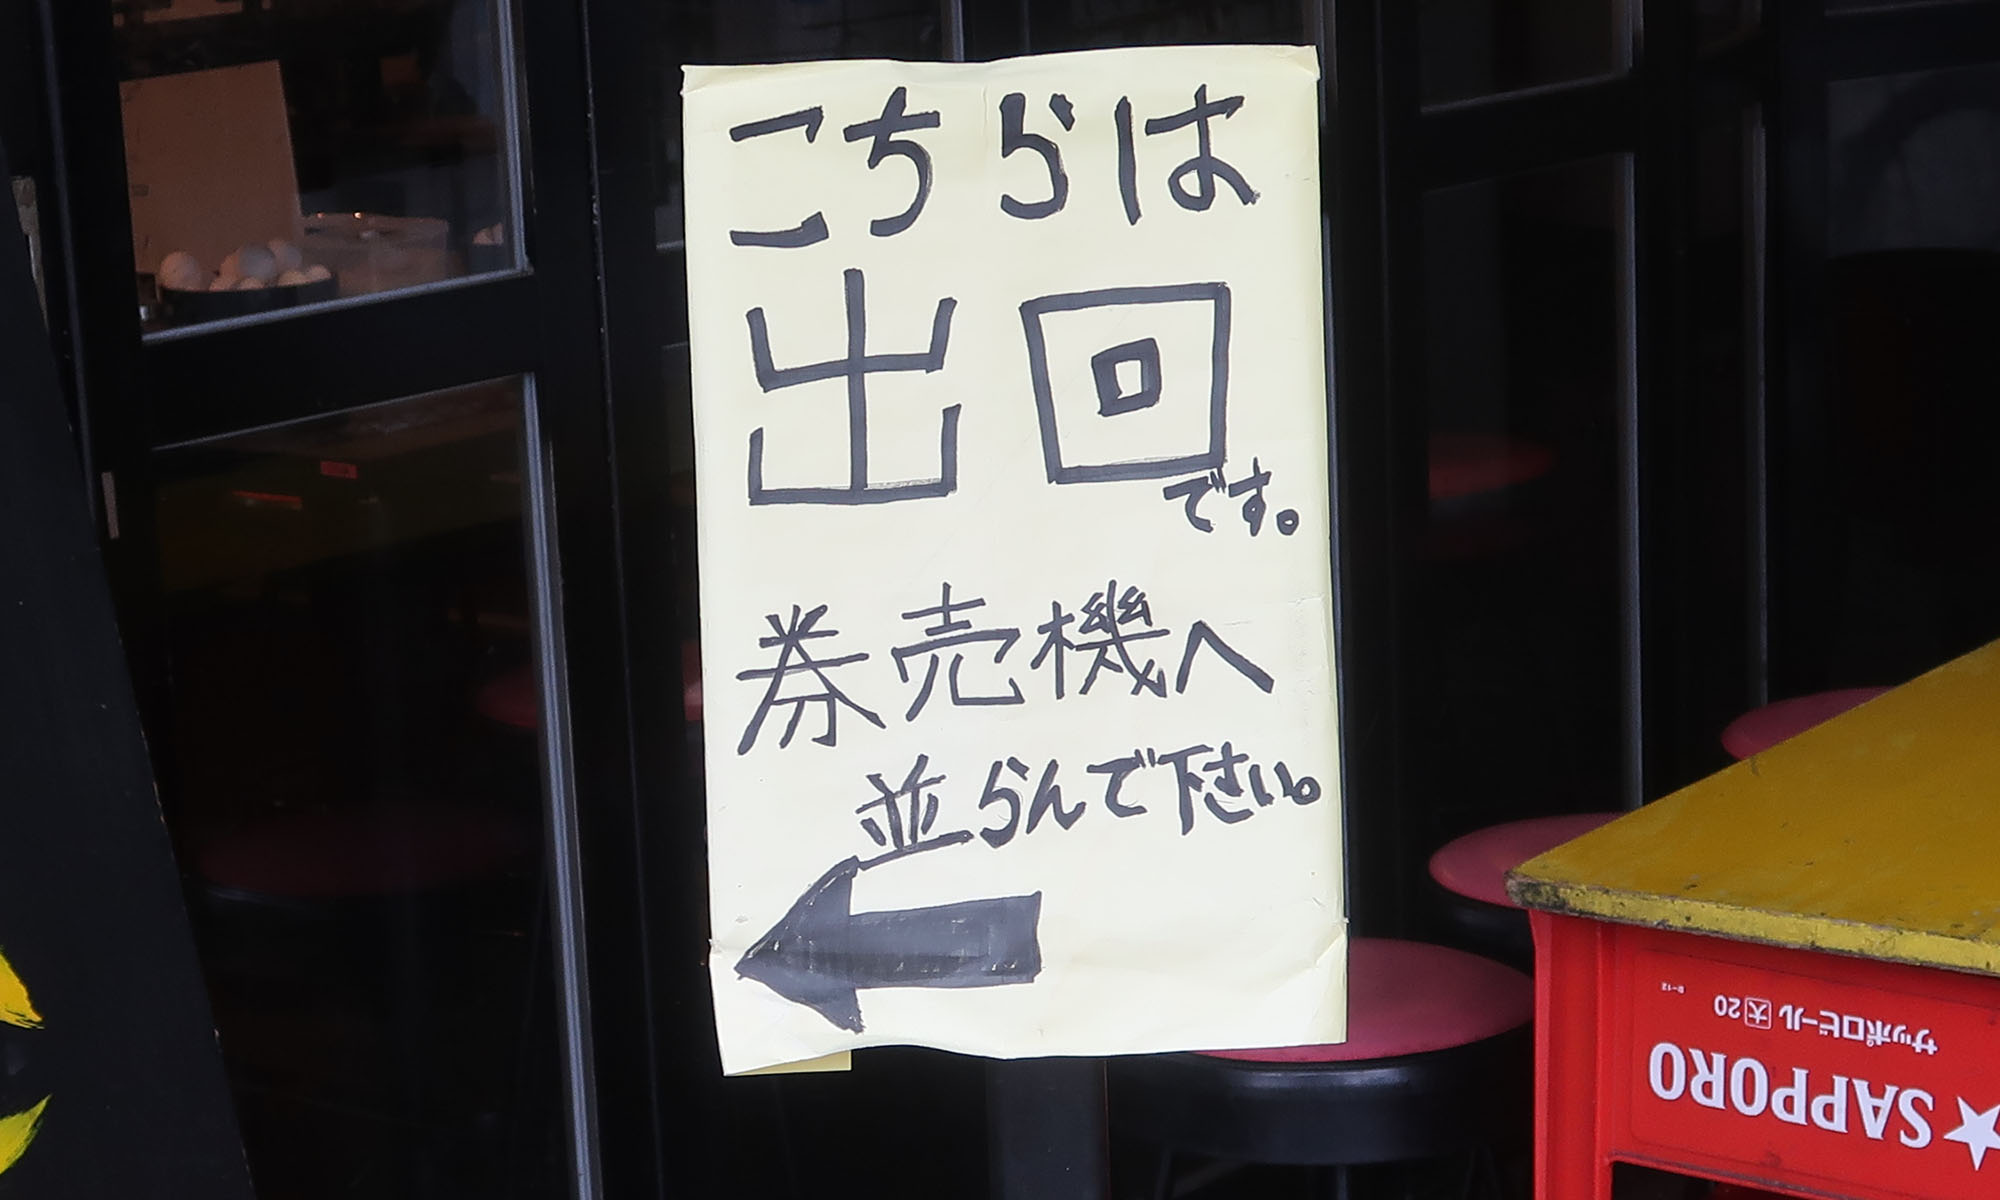 こちらは
出回
です。
券売機へ
並らんで下さい。
サッポロビール 大 20
SAPPORO